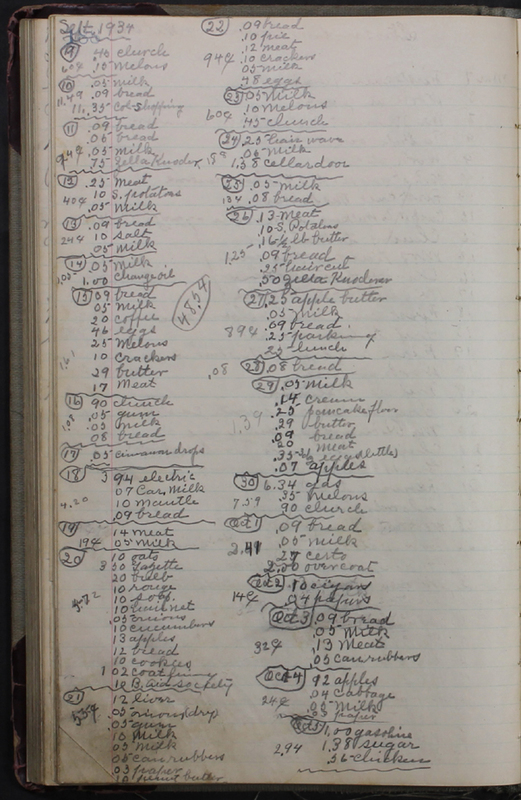 Sept. 1934
9 .45 church
60¢ .15 Melons
10 .05 milk
11.49 .09 bread
11.35 Col. Shopping
11 .09 bread
.05 bread
94¢ .05 milk
75 Zella Knoderer
12 .25 Meat
40¢ 10 S. potatoes
.05 Milk
13 .09 bread
24¢ 10 Salt
.05 Milk
14 .05 Milk
1.05 1.00 Change oil
15 09 bread
05 Milk
20 coffee
46 eggs
25 Melons
1.61 10 Crackers
29 butter
17 Meat
16 90 church
.05 gum
1.08 .05 milk
08 bread
17 .05 cinnamon drops
18 3 94 electric
07 Can. Milk
4.20 10 Mantle
.09 bread
19 14 meat
19¢ 05 Milk
20 10 oats
3 50 Gazette
20 bulb
10 rouge
10 S. pot.
10 hair net
.05 onions
10 cucumbers
13 apples
12 bread
10 cookies
1 02 coat
10 B. Aid Society
21 12 liver
53¢ .05
.05 gum
10 Milk
05 Milk
05 can rubbers
03 paper
10 peanut butter
48.54
22 .09 bread
.10 pie
.12 meat
94¢ .10 crackers
05 milk
28 eggs
23 05 Milk
10 Melons
60¢ 45 church
24 .25 hair wave
.05 Milk
1.58 cellar door
25 .05 milk
13¢ .08 bread
26 .13 Meat
10 S. Potatoes
.16 ½ lb butter
1.25 .09 bread
.25 hair cut
.50 Zella Knoderer
27 .25 apple butter
.05 Milk
.09 bread
89¢ .25 parking
25 lunch
.08 28 .08 bread
29 .05 Milk
.14 cream
1.39 .25 pancake flour
.29 butter
.09 bread
20 meat
.35
.07 apples
30 6.34
7.59 .35 melons
90 church
Oct 1 .09 bread
.05 milk
2.41 27 certo
2.00 overcoat
Oct 2 .10 cigars
14¢ .04 papers
Oct 3 .09 bread
.05 Milk
32¢ .13 Meat
.05 can rubbers
Oct 4 92 apples
.04 cabbage
24¢ .05 Milk
.03 paper
Oct 5 1.00 gasoline
2.94 1.38 sugar
.56 chicken